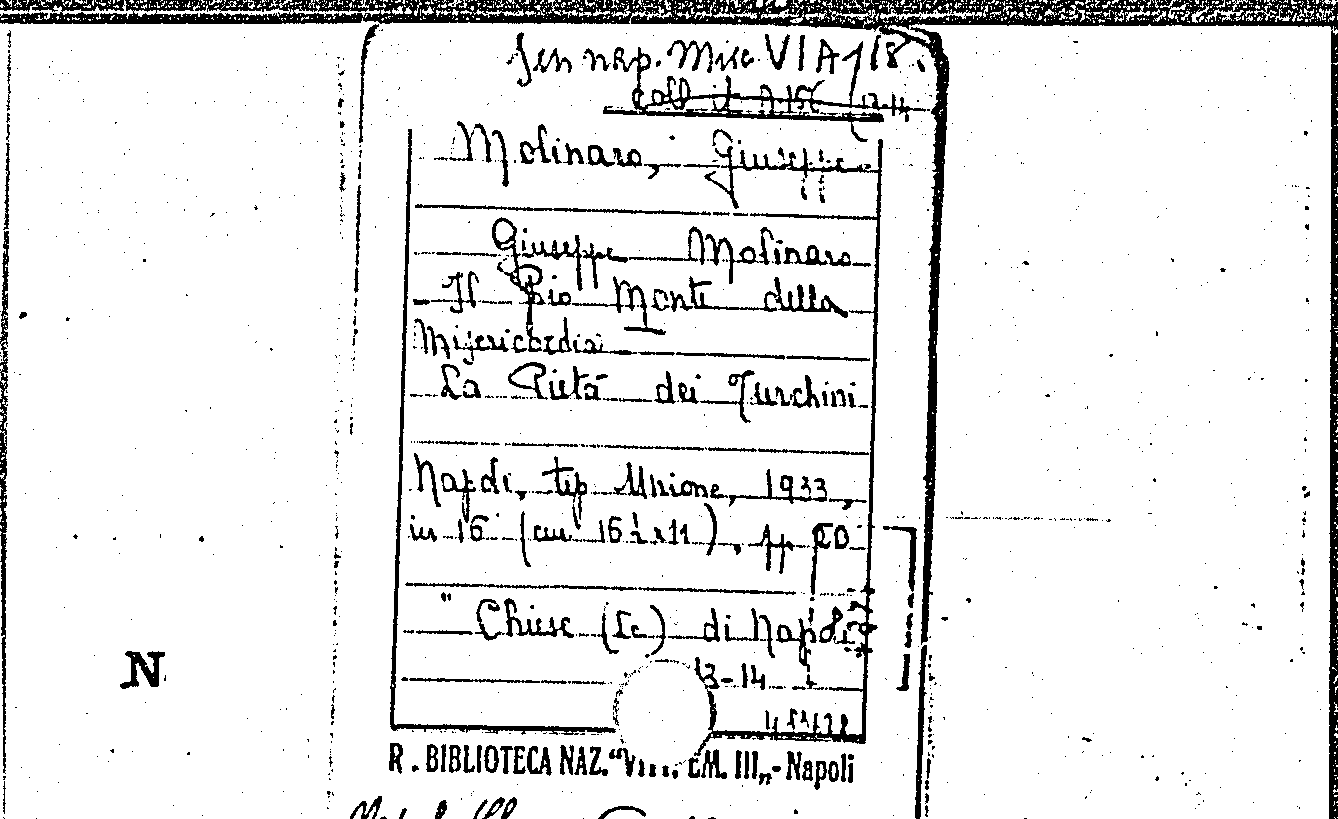 Sez nap. Misc VI A 118.
Coll it A 156 (13-14
Molinaro, Giuseppe
Giuseppe Molinaro
Il Pio Monte della
Misericordia
La Pietà dei Turchini
Napoli, tip Unione, 1933,
in 16° (cm 16½x11), pp
" Chiese (Le) di Napoli"
13-14
R. BIBLIOTECA NAZ. "VITT. EM. III„ - Napoli
N